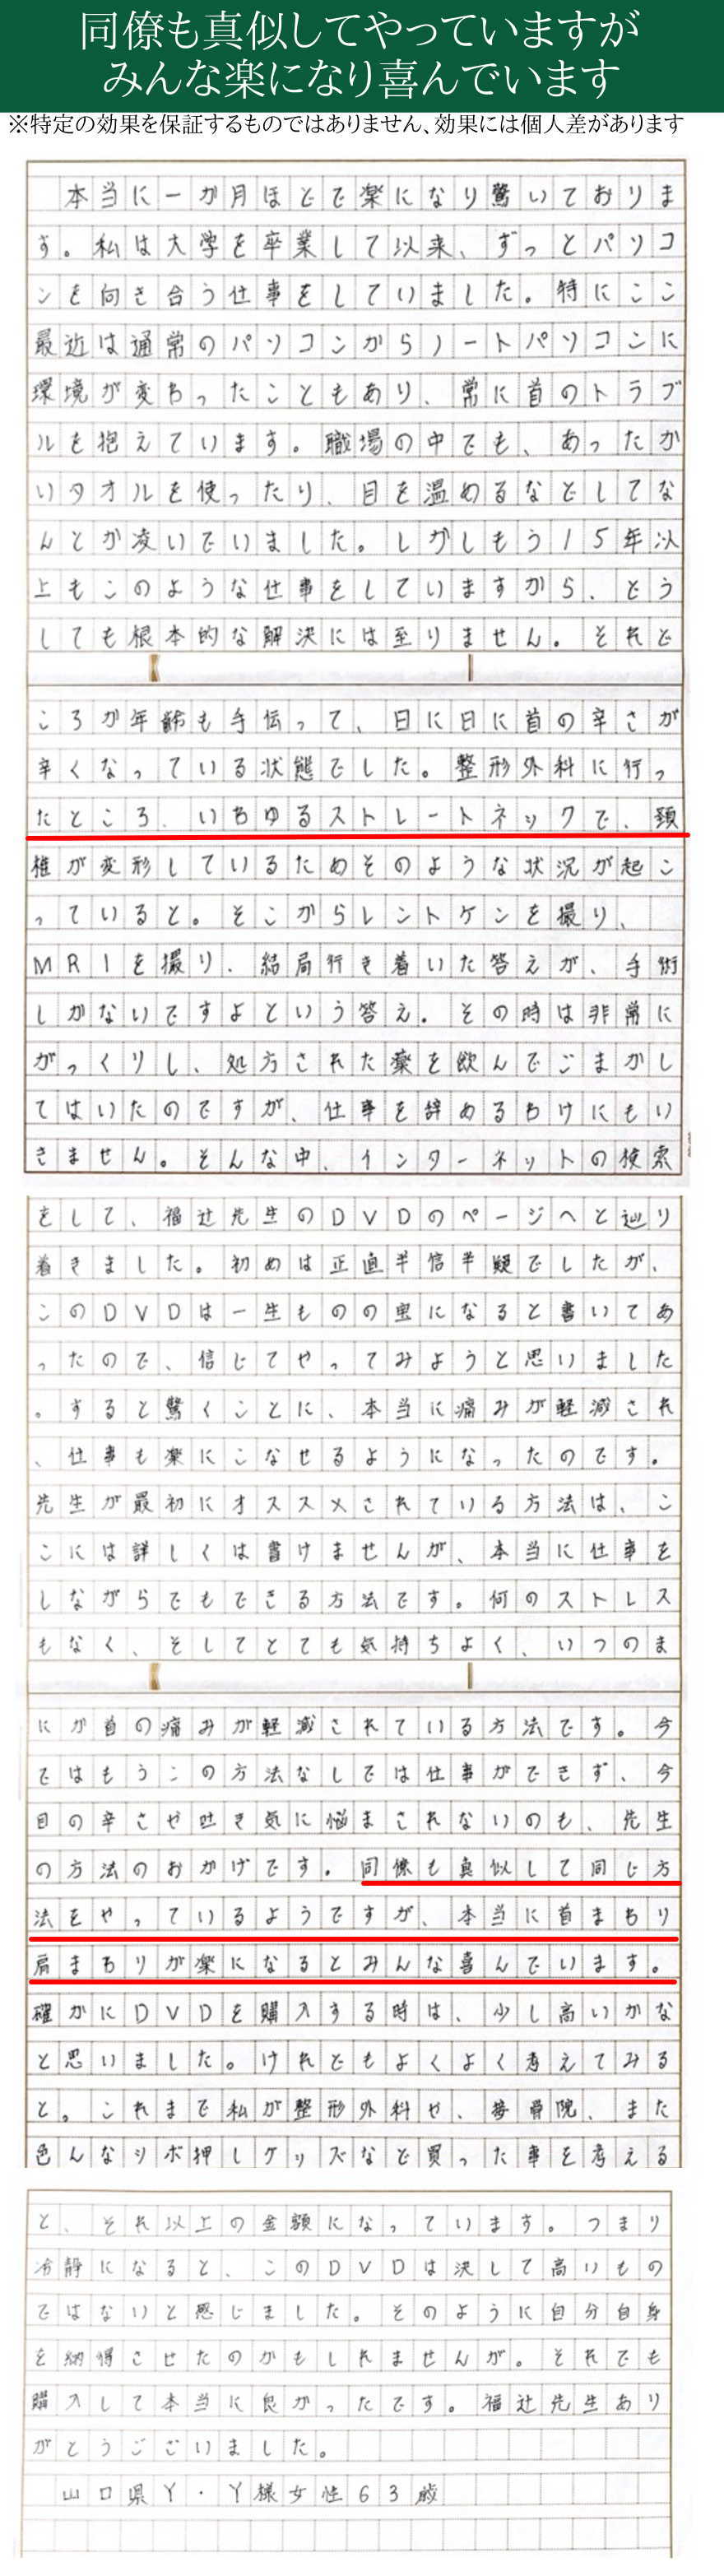 同僚も真似してやっていますが
みんな楽になり喜んでいます
※特定の効果を保証するものではありません、効果には個人差があります
本当に一か月ほどで楽になり驚いておりま
す。私は大学を卒業して以来、ずっとパソコ
ンを向き合う仕事をしていました。特にここ
最近は通常のパソコンからノートパソコンに
環境が変わったこともあり、常に首のトラブ
ルを抱えています。職場の中でも、あったか
いタオルを使ったり、目を温めるなどしてな
んとか凌いでいました。しかしもう15年以
上もこのような仕事をしていますから、どう
しても根本的な解決には至りません。それど
ころか年齢も手伝って、日に日に首の辛さが
辛くなっている状態でした。整形外科に行っ
たところ、いわゆるストレートネックで、頚
椎が変形しているためそのような状況が起こ
っていると。そこからレントケンを撮り、
MRIを撮り、結局行き着いた答えが、手術
しかないですよという答え。その時は非常に
がっくりし、処方された薬を飲んでごまかし
てはいたのですが、仕事を辞めるわけにもい
きません。そんな中、インターネットの検索
をして、福辻先生のDVDのページへと辿り
着きました。初めは正直半信半疑でしたが、
このDVDは一生ものの宝になると書いてあ
ったので、信じてやってみようと思いました
。すると驚くことに、本当に痛みが軽減され
、仕事も楽にこなせるようになったのです。
先生が最初にオススメされている方法は、こ
こには詳しくは書けませんが、本当に仕事を
しながらでもできる方法です。何のストレス
もなく、そしてとても気持ちよく、いつのま
にか首の痛みが軽減されている方法です。今
ではもうこの方法なしでは仕事ができず、今
目の辛さや吐き気に悩まされないのも、先生
の方法のおかげです。同僚も真似して同じ方
法をやっているようですが、本当に首まわり
肩まわりが楽になるとみんな喜んでいます。
確かにDVDを購入する時は、少し高いかな
と思いました。けれどもよくよく考えてみる
と。これまで私が整形外科や、接骨院、また
色んなツボ押しグッズなど買った事を考える
と、それ以上の金額になっています。つまり
冷静になると、このDVDは決して高いもの
ではないと感じました。そのように自分自身
を納得させたのかもしれませんが。それでも
購入して本当に良かったです。福辻先生あり
がとうございました。
山口県Y・Y様女性63歳